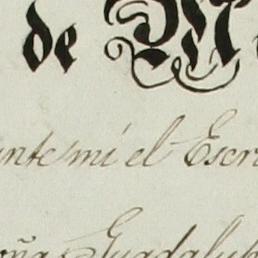 de M
ante mí el Escri
oña Guadalup